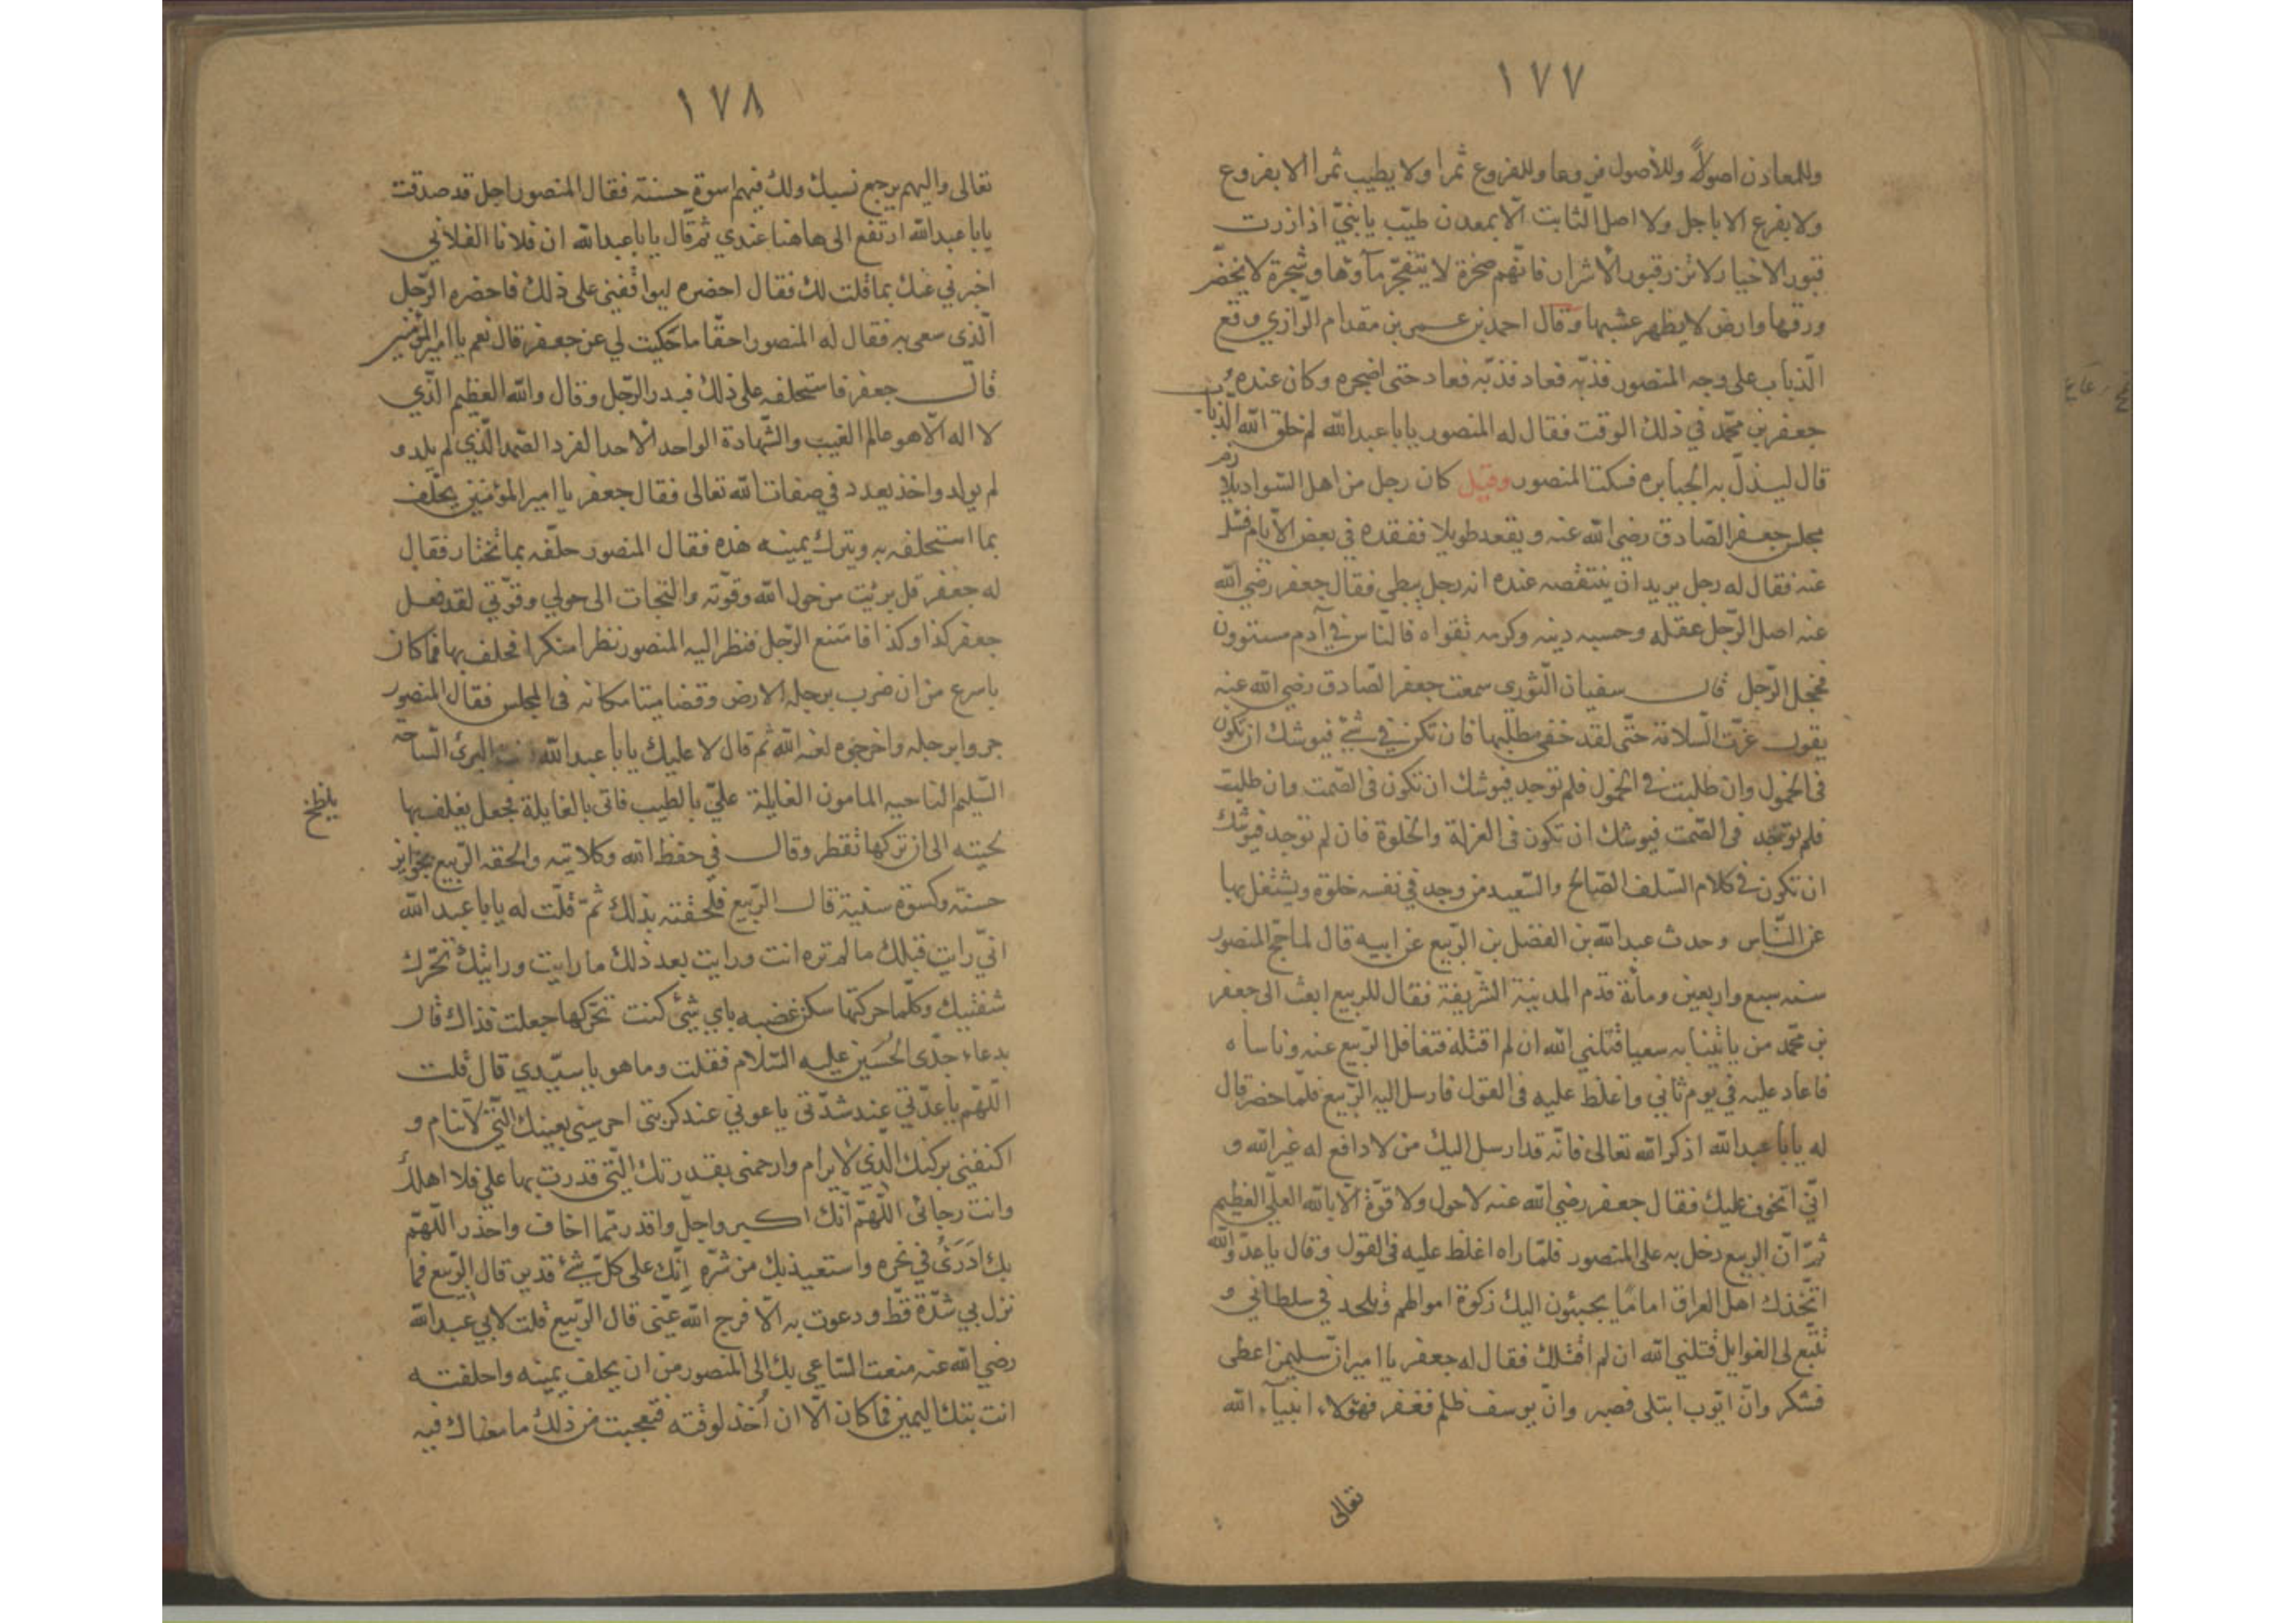 ١٧٧
وللمعادن اصولاً وللأصول فروعا وللفروع ثمرا ولا يطيب ثمرا الا بفروع
ولا بفرع الا باجل ولا اصل الثابت الّا بمعدن طيّب يا بنيّ اذا زرت
قبور الاخيار لا تزر قبور الأشرار فانّهم صخرة لا يتفجّر مآوها وشجرة لا يخضّر
ورقها وارض لا يظهر عشبها وقال احمد بن عمر بن مقدام الرّازي وقع
الذّباب على وجه المنصور فذبّه فعاد فذبّه فعاد حتى اضجره وكان عنده
جعفر بن محمّد في ذلك الوقت فقال له المنصور يابا عبدالله لم خلق الله الذّباب
قال ليذلّ به الجبابره فسكت المنصور وقيل كان رجل من اهل السّواد يلازم
مجلس جعفر الصّادق رضي الله عنه ويقعد طويلا ففقده في بعض الأيّام فسئل
عنه فقال له رجل يريد ان ينتقصه عنده انه رجل نبطي فقال جعفر رضي الله
عنه اصل الرّجل عقله وحسبه دينه وكرمه تقواه فالنّاس في آدم مستوون
فخجل الرّجل قال سفيان الثّوري سمعت جعفر الصّادق رضي الله عنه
يقول عزّت السّلامة حتّى لقد خفي مطلبها فان تكن في شئ فيوشك ان تكون
في الخمول وان طلبت في الخمول فلم توجد فيوشك ان تكون في الصّمت وان طلبت
فلم توجد في الصّمت فيوشك ان تكون في العزلة والخلوة فان لم توجد فيوشك
ان تكون في كلام السّلف الصّالح والسّعيد من وجد في نفسه خلوة ويشتغل بها
عن النّاس وحدث عبدالله بن الفضل بن الرّبيع عن ابيه قال لما حجّ المنصور
سنه سبع واربعين ومأئة قدم المدينة الشّريفة فقال للربيع ابعث الى جعفر
بن محمّد من ياتينا به سعيا قتلني الله ان لم اقتله فتغافل الرّبيع عنه وناساه
فاعاد عليه في يوم ثاني واغلظ عليه في القول فارسل اليه الرّبيع فلمّا حضر قال
له يابا عبدالله اذكر الله تعالى فانّه قد ارسل اليك من لا دافع له غير الله و
انّي اتخوف عليك فقال جعفر رضي الله عنه لا حول ولا قوّة الّا بالله العليّ العظيم
ثمّ انّ الربيع دخل به على المنصور فلمّا راه اغلظ عليه في القول وقال يا عدوّ الله
اتّخذك اهل العراق اماما يجبئون اليك زكوة اموالهم وتلحد في سلطاني و
تتّبع لى الغوايل قتلني الله ان لم اقتلك فقال له جعفر يا امير انّ سليمن اعطى
فشكر وانّ ايّوب ابتلى فصبر وانّ يوسف ظلم فغفر فهؤلاء انبيآء الله
تعالى
١٧٨
تعالى واليهم يرجع نسبك ولك فيهم اسوة حسنة فقال المنصور اجل قد صدقت
يابا عبدالله ارتفع الى هاهنا عندي ثم قال يابا عبدالله ان فلانا الفلاني
اخبرني عنك بما قلت لك فقال احضره ليوافقني على ذلك فاحضره الرّجل
الّذي سعى به فقال له المنصور احقّا ما حكيت لي عن جعفر قال نعم يا امير المؤمنين
قال جعفر فاستحلفه على ذلك فبدر الرّجل وقال والله العظيم الّذي
لا اله الّا هو عالم الغيب والشّهادة الواحد الأحد الفرد الصّمد الّذي لم يلد و
لم يولد واخذ يعدد في صفات الله تعالى فقال جعفر يا امير المؤمنين يحلف
بما استحلفه به ويترك يمينه هذه فقال المنصور حلّفه بما تختار فقال
له جعفر قل برئت من حول الله وقوّته والتجات الى حولي وقوّتي لقد فعل
جعفر كذا وكذا فامتنع الرّجل فنظر اليه المنصور نظرا منكرا فحلف بها فما كان
باسرع من ان ضرب برجله الارض وقضا ميتا مكانه في المجلس فقال المنصور
جروا برجله واخرجوه لعنه الله ثم قال لا عليك يابا عبدالله انت البرئ السّاحه
السّليم الناحيه المامون الغايلة عليّ بالطيب فاتى بالغايلة فجعل يغلف بها
يلطخ
لحيته الى ان تركها تقطر وقال في حفظ الله وكلاتيه والحقه الرّبيع بجوايز
حسنة وكسوة سنية قال الرّبيع فلحقته بذلك ثمّ قلت له يابا عبدالله
انّي رايت قبلك ما لم تره انت ورايت بعد ذلك ما رايت ورايتك تحّرك
شفتيك وكلّما حركتها سكن غضبه باي شئ كنت تحّركها جعلت فذاك قال
بدعاء جدّى الحُسين عليه السّلام فقلت وما هو يا سيّدي قال قلت
اللّهّم يا عدّتي عند شدّتي يا عوني عند كربتي احرسني بعينك الّتي لا تنام و
اكنفني بركنك الّذي لا يرام وارحمني بقدرتك الّتي قدرت بها علي فلا اهلك
وانت رجائى اللّهّم انّك اكبر واجلّ واقدر ممّا اخاف واحذر اللّهّم
بك ادَرَئُ في نحره واستعيذ بك من شرّه إنّك على كلّ شئ قدير قال الرّبيع فما
نزل بي شدّة قطّ ودعوت به الّا فرج الله عنّي قال الرّبيع قلت لابي عبدالله
رضي الله عنه منعت السّاعي بك الى المنصور من ان يحلف يمينه واحلفته
انت بتلك اليمين فما كان الّا ان أُخذ لوقته فتعجبت من ذلك ما معناك فيه